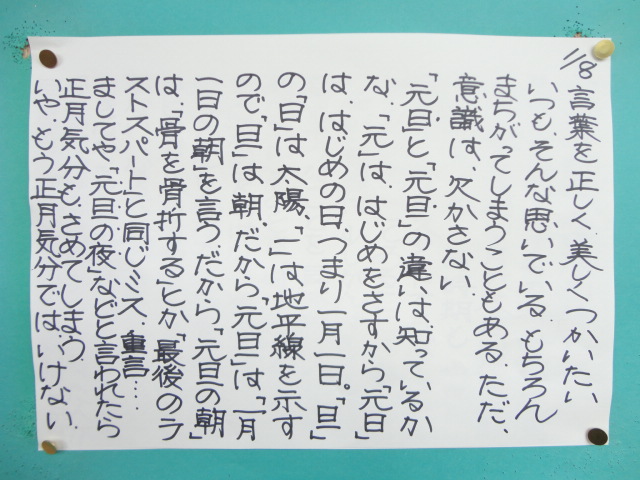 1/8 言葉を正しく、美しくつかいたい
いつも、そんな思いでいる。もちろん
まちがってしまうこともある。ただ、
意識は、欠かさない。
「元日」と「元旦」の違いは、知っているか
な。「元」は、はじめをさすから「元日」
は、はじめの日、つまり一月一日。「旦」
の「日」は太陽、「一」は地平線を示す
ので「旦」は朝。だから、「元旦」は、「一月
一日の朝」を言う。だから、「元旦の朝」
は、「骨を骨折する」とか「最後のラ
ストスパート」と同じミス。重言…
ましてや「元旦の夜」などと言われたら
正月気分も、さめてしまう。
いや、もう正月気分では、いけない。